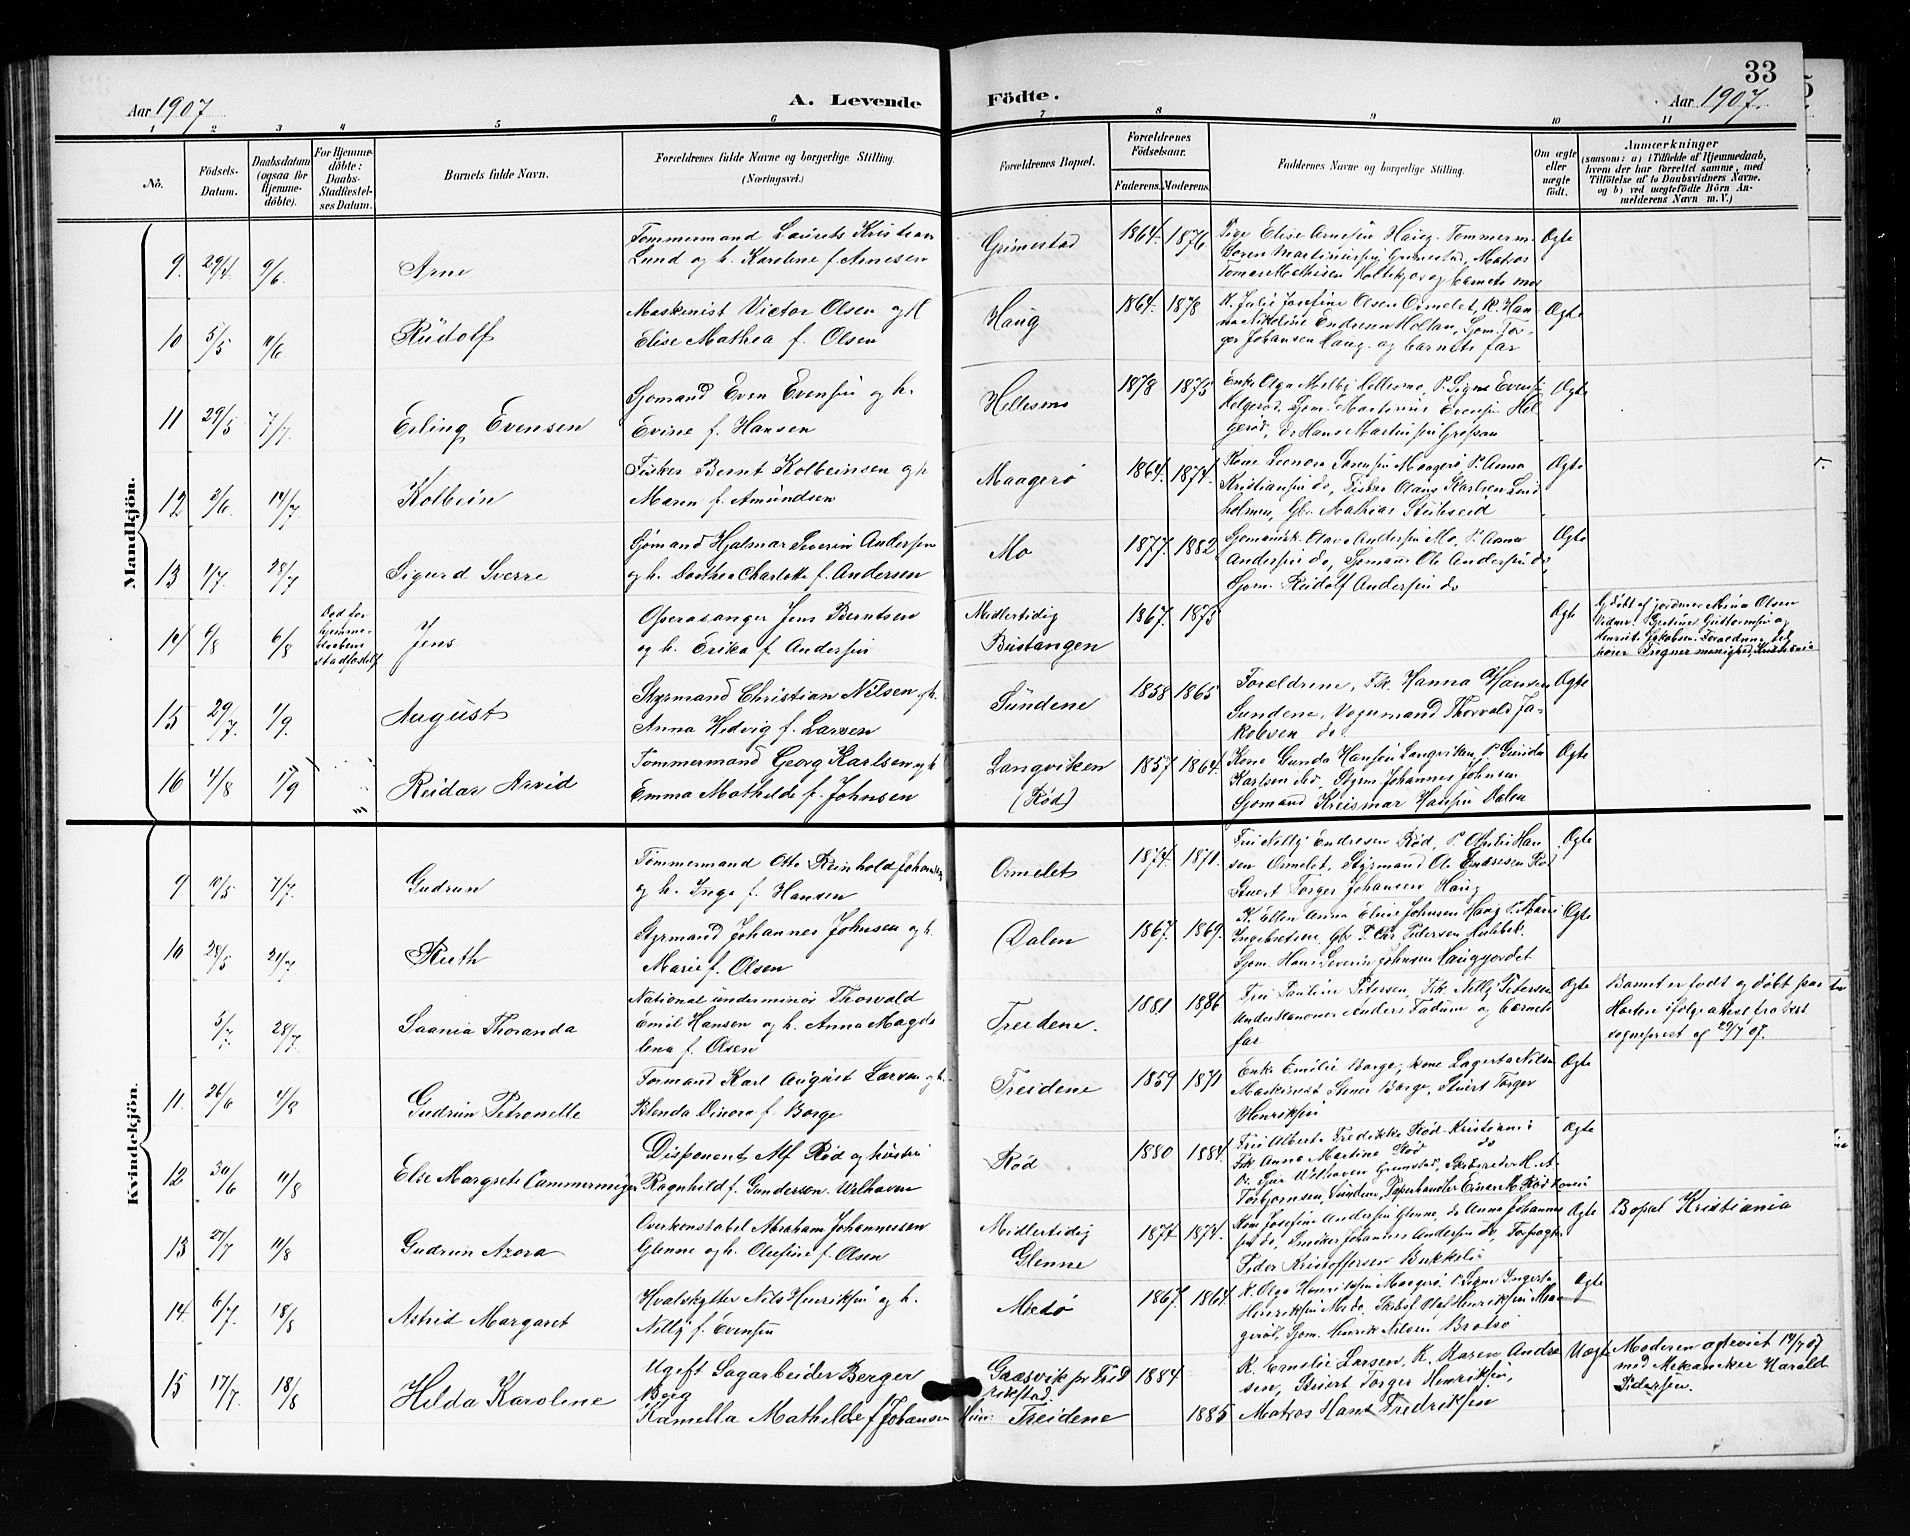 33
Aar 1907
A. Levende Födte.
Aar 1907.
1 2 3 4 5 6 7 8 9 10 11
No.
Födsels-Datum.
Daabsdatum (ogsaa for Hjemme-döbte).
For Hjemme-döbte: Daabs-Stadfæstel-ses Datum.
Barnets fulde Navn.
Forældrenes fulde Navne og borgerlige Stilling. (Næringsvei.)
Forældrenes Bopæl.
Forældrenes Födselsaar.
Faderens. Moderens.
Faddernes Navne og borgerlige Stilling.
Om ægte eller uægte födt.
Anmærkninger
(saasom: a) i Tilfælde af Hjemmedaab, hvem der har forrettet samme, med Tilföielse af to Daabsvidners Navne, og b) ved uægtefödte Börn Anmelderens Navn m. V.)
Mandkjön.
9 29/4 9/6 Arne
Tømmermand Laurits Kristian
Lund og h. Karoline f. Arnesen
Grimestad 1864. 1876
Pige Elise Arnesen Haug. Tømmerm.
Søren Martiniussen Grimestad, Matros
Tomas Mathisen Holtekjær og barnets mor
Ægte
10 5/5 9/6 Rudolf
Maskinist Victor Olsen og H
Elise Mathea f. Olsen
Haug 1864. 1878
K. Julie Josefine Olsen Ormelet, K. Han-
na Nikoline Endresen Holtan, Sjøm. Tor-
ger Johansen Haug. og barnets far
Ægte
11 29/5 7/7. Erling Evensen
Sjømand Even Evensen og h.
Evine f. Hansen
Hellesmo 1878 1875
Enke Olga Melby Hellesmo, P. Signe Evensen
Helgerød, Sjøm. Martinius Evensen Hel
gerød, do Hans Martinsen Gropsan
Ægte
12 3/6 14/7 Kolbein
Fisker Bernt Kolbeinsen og h
Maren f. Amundsen
Maagerø 1864 1874.
Kone Leonora Sørensen Maagerø P. Anna
Kristiansen do, Fisker Olaus Karlsen Lind
holmen, Gbr. Mathias Stubseid
Ægte
13 1/7. 28/7 Sigurd Sverre
Sjømand Hjalmar Severin Andersen
og h. Dorthea Charlotte f. Andersen
Mo 1877. 1882
Sjømandsk. Olava Andersen Mo, P. Anna
Andersen do, Sjømand Ole Andersen do,
Sjøm. Reidolf Andersen do
Ægte
14 6/8 6/8
Død før
hjemme-
daabens
stadfæstelse
Jens
Operasanger Jens Berntsen
og h. Erika f. Andersen
Midlertidig
Bustangen
1867. 1875 Ægte
Hj.døbt af jordmor Mina Olsen
Vidner: Gjertine Guttormsen og
Henriet. Jakobsen. Forældrene til
hører Frigner menighed, Kristiania
15 29/7. 1/9. August
Styrmand Christian Nilsen og h.
Anna Hedvig f. Larsen
Sundene 1858 1865
Forældrene, Frk. Hanna Hansen
Sundene, Vognmand Thorvald Ja-
kobsen do
Ægte
16 4/8 1/9 Reidar Arvid
Tømmermand Georg Karlsen og h
Emma Mathilde f. Johnsen
Langviken
(Rød)
1857 1864.
Kone Gunda Hansen Langviken, P. Gunda
Karlsen ibd, Styrm. Johannes Johnsen
Sjømand Kreismar Hansen Dalen
Ægte
Kvindekjön.
9 10/5 7/7. Gudrun
Tømmermand Otto Reinhold Johansen
og h. Inga f. Hansen
Ormelet 1874. 1871.
Fru Nelly Endresen Rød, P. Othilie Han
sen Ormelet, Styrmand Ole Endresen Rød
Stuert Torger Johansen Haug
Ægte
10 28/5 21/7 Ruth
Styrmand Johannes Johnsen og h.
Marie f. Olsen
Dalen 1867. 1869.
K. Ellen Anna Eline Johnsen Haug P. Marie
Ingebretsen, Gbr. P. Chr. Pedersen Holebek.
Sjøm. Hans Severin Johnsen Haugjordet
Ægte
5/7. 28/7. Saania Thoranda
National underminør Thorvald
Emil Hansen og h. Anna Magda
lena f. Olsen
Treidene. 1881 1886
Fru Pauline Petersen, Frk. Nelly Petersen
Underkanoner Anders Fadum og barnets
far
Ægte
Barnet er født og døbt paa
Horten ifølge attest fra
sogneprest af 29/7 07.
11 26/6 4/8 Gudrun Petronelle
Formand Karl August Larsen og h.
Blenda Dinora f. Borge
Treidene 1859 1871
Enke Emilie Borge, kone Lagerta Nilsen
Maskinist Stener Borge, Stuert Torger
Henriksen
Ægte
12 30/6 11/8 Else Margrete Cammermeyer
Disponent Alf Rød og hustru
Ragnhild f. Gundersen Welhaven
Rød 1880 1884.
Fru Alberta Fredrikke Rød Kristiania
Frk. Anna Martina Rød do
Dr. Gjør Welhaven Grimstad, Skibsreder H. A.
Torbjørnsen, Sundene, Papirhandler Einar M. Rød
Ægte
13 27/7 11/8 Gudrun Azora
Overkonstabel Abraham Johannessen
Glenne og h. Olufine f. Olsen
Midlertidig
Glenne
1877 1874.
Kone Josefine Andersen Glenne, do Anna Johannes
sen do, Snekker Johannes Andersen do, Forpagter
Peder Kristoffersen Bukkeli
Ægte
Bopæl Kristiania
14. 6/7. 18/8 Astrid Margaret
Hvalskytter Nils Henriksen og h.
Nelly f. Evensen
Medø 1867. 1864.
K. Olga Henriksen Maagerø. P. Signe Ingerta
Henriksen Medø, Skibsf. Olaf Henriksen Maa
gerø, Sjøm. Henrik Nilsen Bratsø
Ægte
15 17/7. 18/8 Hilda Karoline
Ugift Sagarbeider Berger
Borg
Kamella Mathilde f. Johansen
Gaasvik pr Fred
rikstad.
Hun: Treidene
1884
1885
K. Emelie Larsen, K. Karen Andre
sen, Stuert Torger Henriksen,
Matros Hans Fredriksen
Uægte
Moderen ægteviet 14/7 07
med Mekaniker Harald
Pedersen.